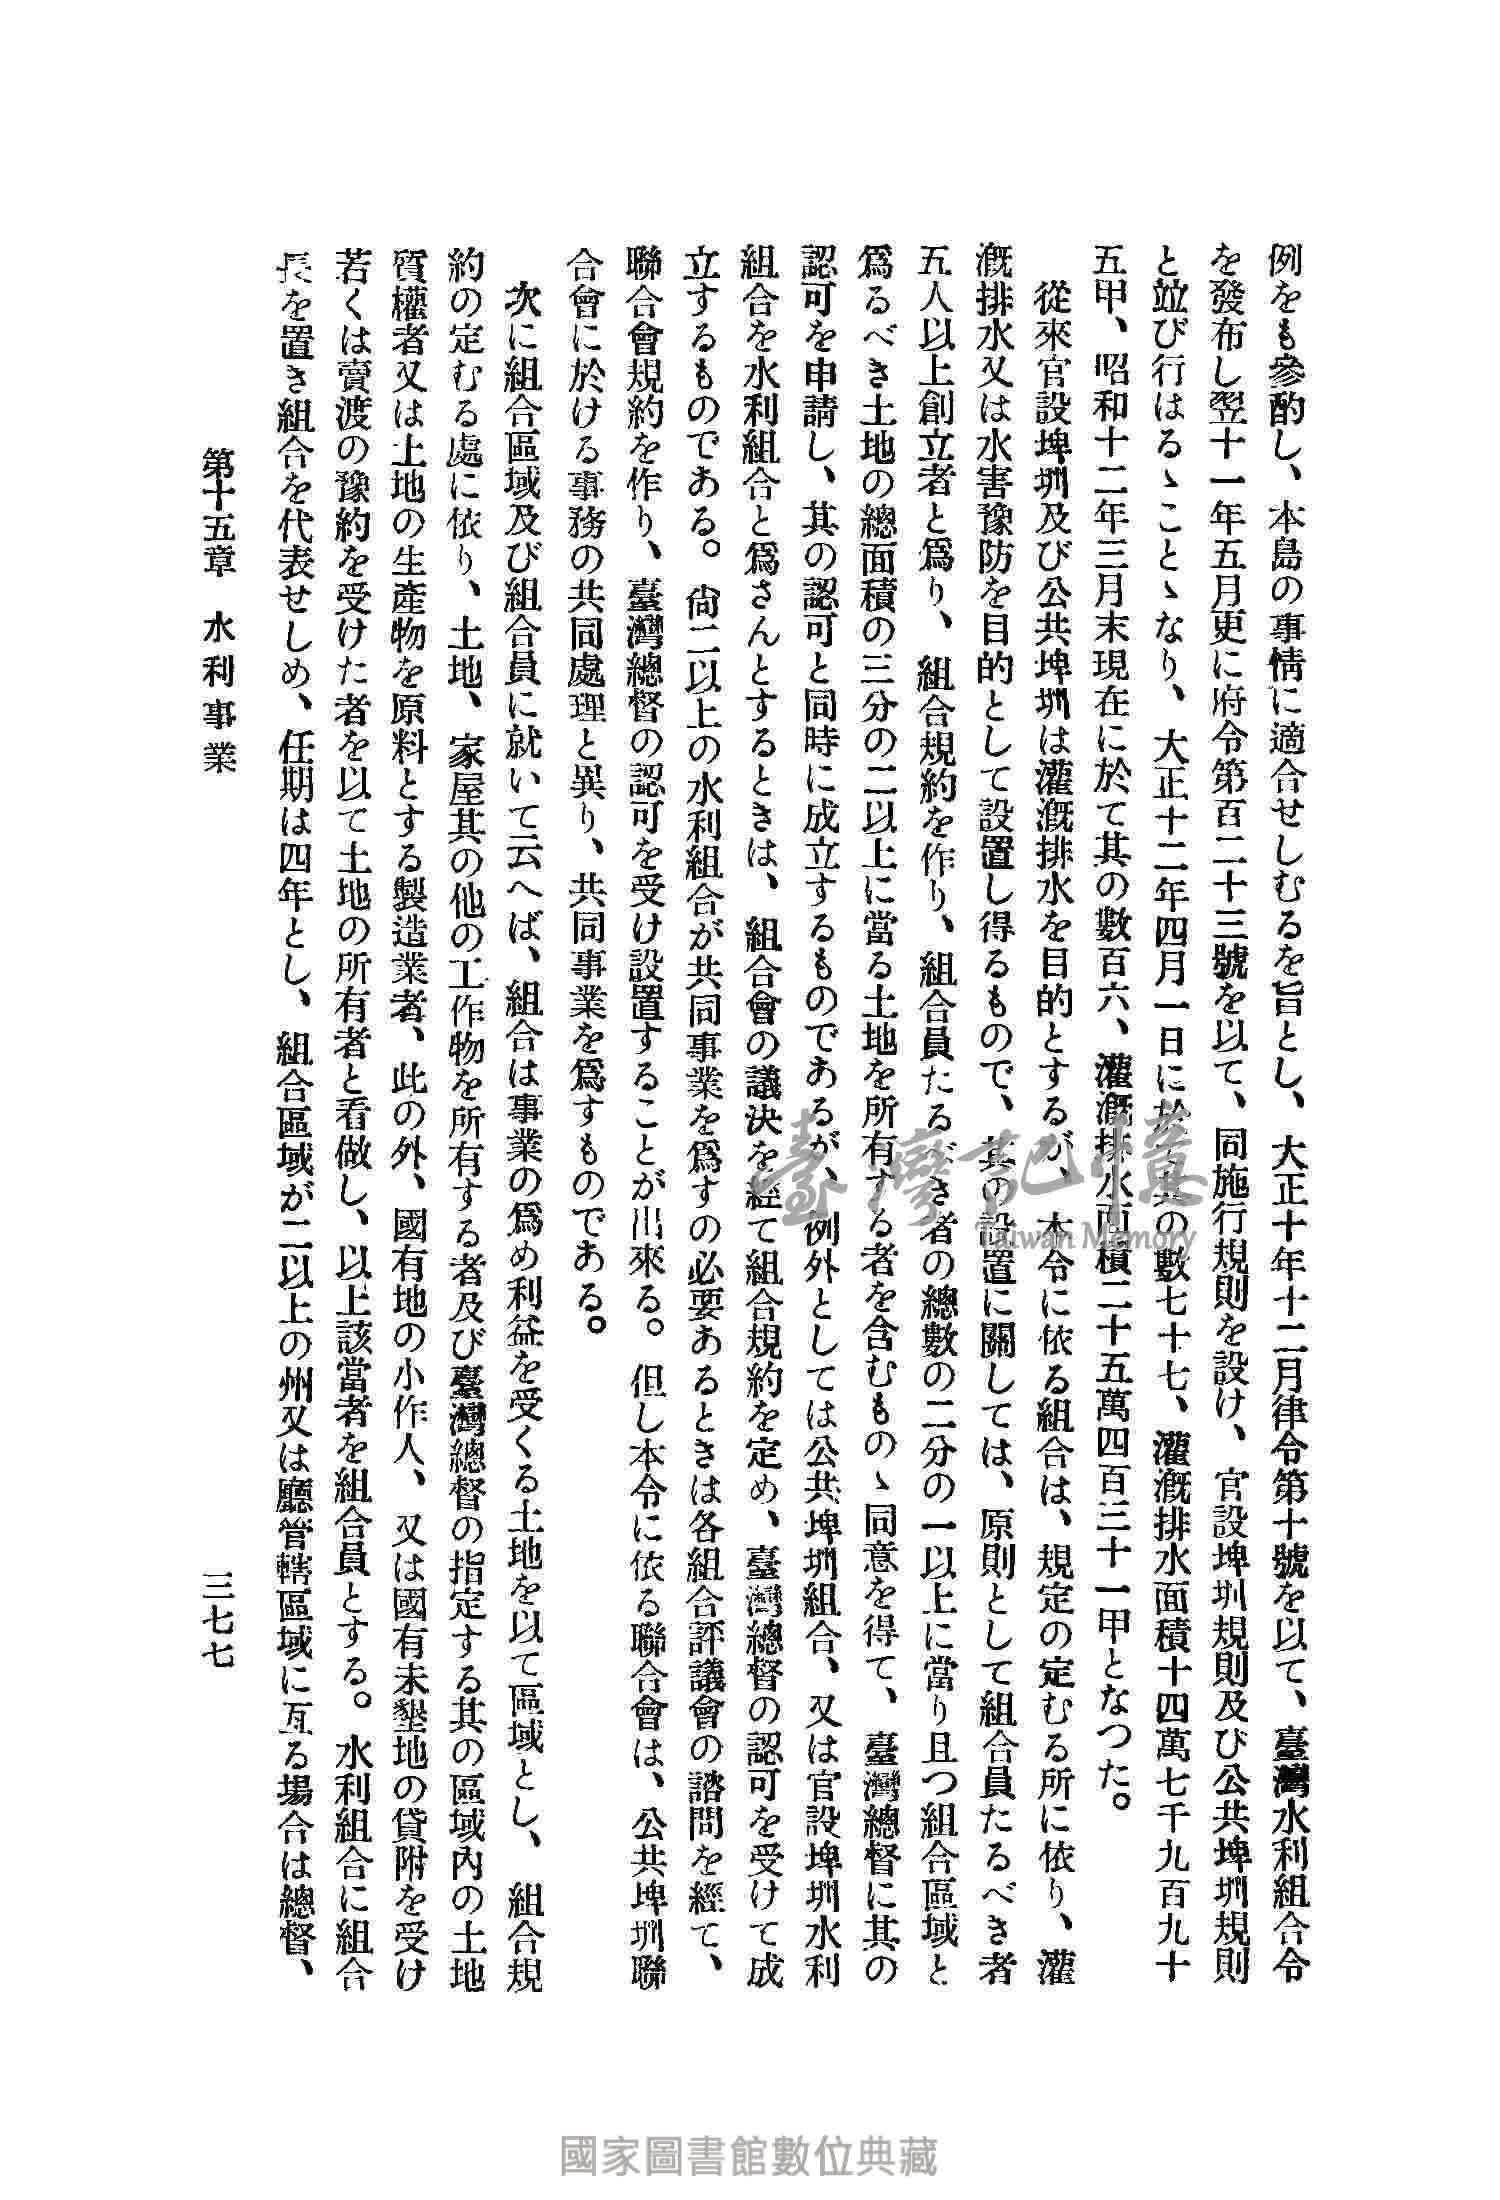 例をも參酌し、本島の事情に適合せしむるを旨とし、大正十年十二月律令第十號を以て、臺灣水利組合令
を發布し翌十一年五月更に府令第百二十三號を以て、同施行規則を設け、官設埤圳規則及び公共埤圳規則
と竝び行はるゝことゝなり、大正十二年四月一日に於て其の數七十七、灌漑排水面積十四萬七千九百九十
五甲、昭和十二年三月末現在に於て其の數百六、灌漑排水面積二十五萬四百三十一甲となつた。
從來官設埤圳及び公共埤圳は灌漑排水を目的とするが、本令に依る組合は、規定の定むる所に依り、灌
漑排水又は水害豫防を目的として設置し得るもので、其の設置に關しては、原則として組合員たるべき者
五人以上創立者と爲り、組合規約を作り、組合員たるべき者の總數の二分の一以上に當り且つ組合區域と
爲るべき土地の總面積の三分の二以上に當る土地を所有する者を含むものゝ同意を得て、臺灣總督に其の
認可を申請し、其の認可と同時に成立するものであるが、例外としては公共埤圳組合、又は官設埤圳水利
組合を水利組合と爲さんとするときは、組合會の議決を經て組合規約を定め、臺灣總督の認可を受けて成
立するものである。尙二以上の水利組合が共同事業を爲すの必要あるときは各組合評議會の諮問を經て、
聯合會規約を作り、臺灣總督の認可を受け設置することが出來る。但し本令に依る聯合會は、公共埤圳聯
合會に於ける事務の共同處理と異り、共同事業を爲すものである。
次に組合區域及び組合員に就いて云へば、組合は事業の爲め利益を受くる土地を以て區域とし、組合規
約の定むる處に依り、土地、家屋其の他の工作物を所有する者及び臺灣總督の指定する其の區域內の土地
質權者又は土地の生產物を原料とする製造業者、此の外、國有地の小作人、又は國有未墾地の貸附を受け
若くは賣渡の豫約を受けた者を以て土地の所有者と看做し、以上該當者を組合員とする。水利組合に組合
長を置き組合を代表せしめ、任期は四年とし、組合區域が二以上の州又は廳管轄區域に亙る場合は總督、
第十五章 水利事業
三七七
臺灣記憶
Taiwan Memory
國家圖書館數位典藏